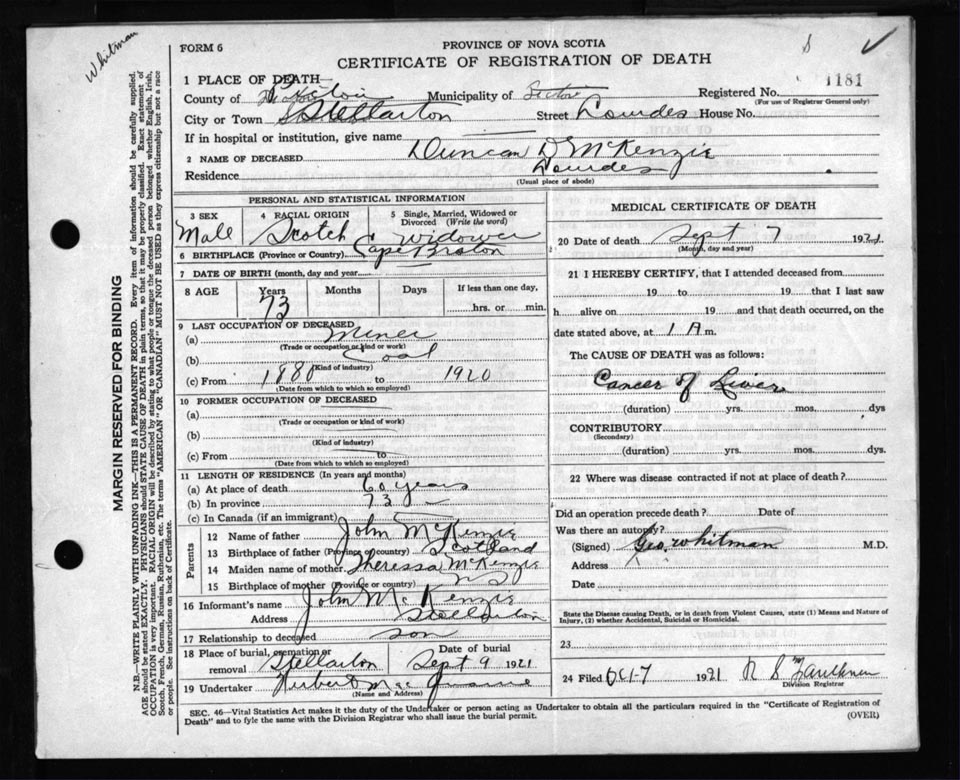 Whitman
FORM 6
PROVINCE OF NOVA SCOTIA
CERTIFICATE OF REGISTRATION OF DEATH
1181
1 PLACE OF DEATH—
County of Pictou Municipality of Registered No.
(For use of Registrar General only)
City or Town Stellarton Street Lourdes House No.
If in hospital or institution, give name
2 NAME OF DECEASED Duncan D McKenzie
Residence Lourdes
(Usual place of abode)
PERSONAL AND STATISTICAL INFORMATION
3 SEX 4 RACIAL ORIGIN 5 Single, Married, Widowed or Divorced (Write the word)
Male Scotch Widower
6 BIRTHPLACE (Province or Country) Cape Breton
7 DATE OF BIRTH (month, day and year
8 AGE Years Months Days If less than one day,
73 hrs. or min.
9 LAST OCCUPATION OF DECEASED
(a) Miner
(Trade or occupation or kind or work)
(b) Coal
(Kind of industry)
(c) From 1880 to 1920
(Date from which to which so employed)
10 FORMER OCCUPATION OF DECEASED
(a)
(Trade or occupation or kind or work)
(b)
(Kind of industry)
(c) From to
(Date from which to which so employed)
11 LENGTH OF RESIDENCE (In years and months)
(a) At place of death 60 years
(b) In province 73
(c) In Canada (if an immigrant)
Parents
12 Name of father John McKenzie
13 Birthplace of father (Province or country) Scotland
14 Maiden name of mother Theressa McKenzie
15 Birthplace of mother (Province or country) NS
16 Informant's name John McKenzie
Address Stellarton
17 Relationship to deceased son
18 Place of burial, cremation or removal Stellarton Date of burial Sept 9 1921
19 Undertaker Herbert
(Name and Address)
MEDICAL CERTIFICATE OF DEATH
20 Date of death Sept 7 1921
(Month, day and year)
21 I HEREBY CERTIFY, that I attended deceased from
19 to 19 that I last saw
h alive on 19 and that death occurred, on
date stated above, at 1 A m.
The CAUSE OF DEATH was as follows:
Cancer of Liver
(duration) yrs. mos. dys
CONTRIBUTORY
(Secondary)
(duration) yrs. mos. dys.
22 Where was disease contracted if not at place of death?
Did an operation precede death? Date of
Was there an autopsy?
(Signed) Geo. Whitman M.D.
Address
Date
State the Disease causing Death, or in death from Violent Causes, state (1) Means and Nature of
Injury, (2) whether Accidental, Suicidal or Homicidal.
23
24 Filed Oct-7 1921 R S Faulkner
Division Registrar
SEC. 46—Vital Statistics Act makes it the duty of the Undertaker or person acting as Undertaker to obtain all the particulars required in the "Certificate of Registration of
Death" and to fyle the same with the Division Registrar who shall issue the burial permit.
(OVER)
MARGIN RESERVED FOR BINDING
N.B.—WRITE PLAINLY WITH UNFADING INK—THIS IS A PERMANENT RECORD. Every item of information should be carefully supplied.
AGE should be stated EXACTLY. PHYSICIANS should STATE CAUSE OF DEATH in plain terms, so that it may be properly classified. Exact statement of
OCCUPATION is very important. RACIAL ORIGIN will be described by stating to what people or tongue the deceased person belonged whether English, Irish,
Scotch, French, German, Russian, Ruthenian, etc. The terms "AMERICAN" OR "CANADIAN" MUST NOT BE USED as they express citizenship but not a race
or people. See instructions on back of Certificate.